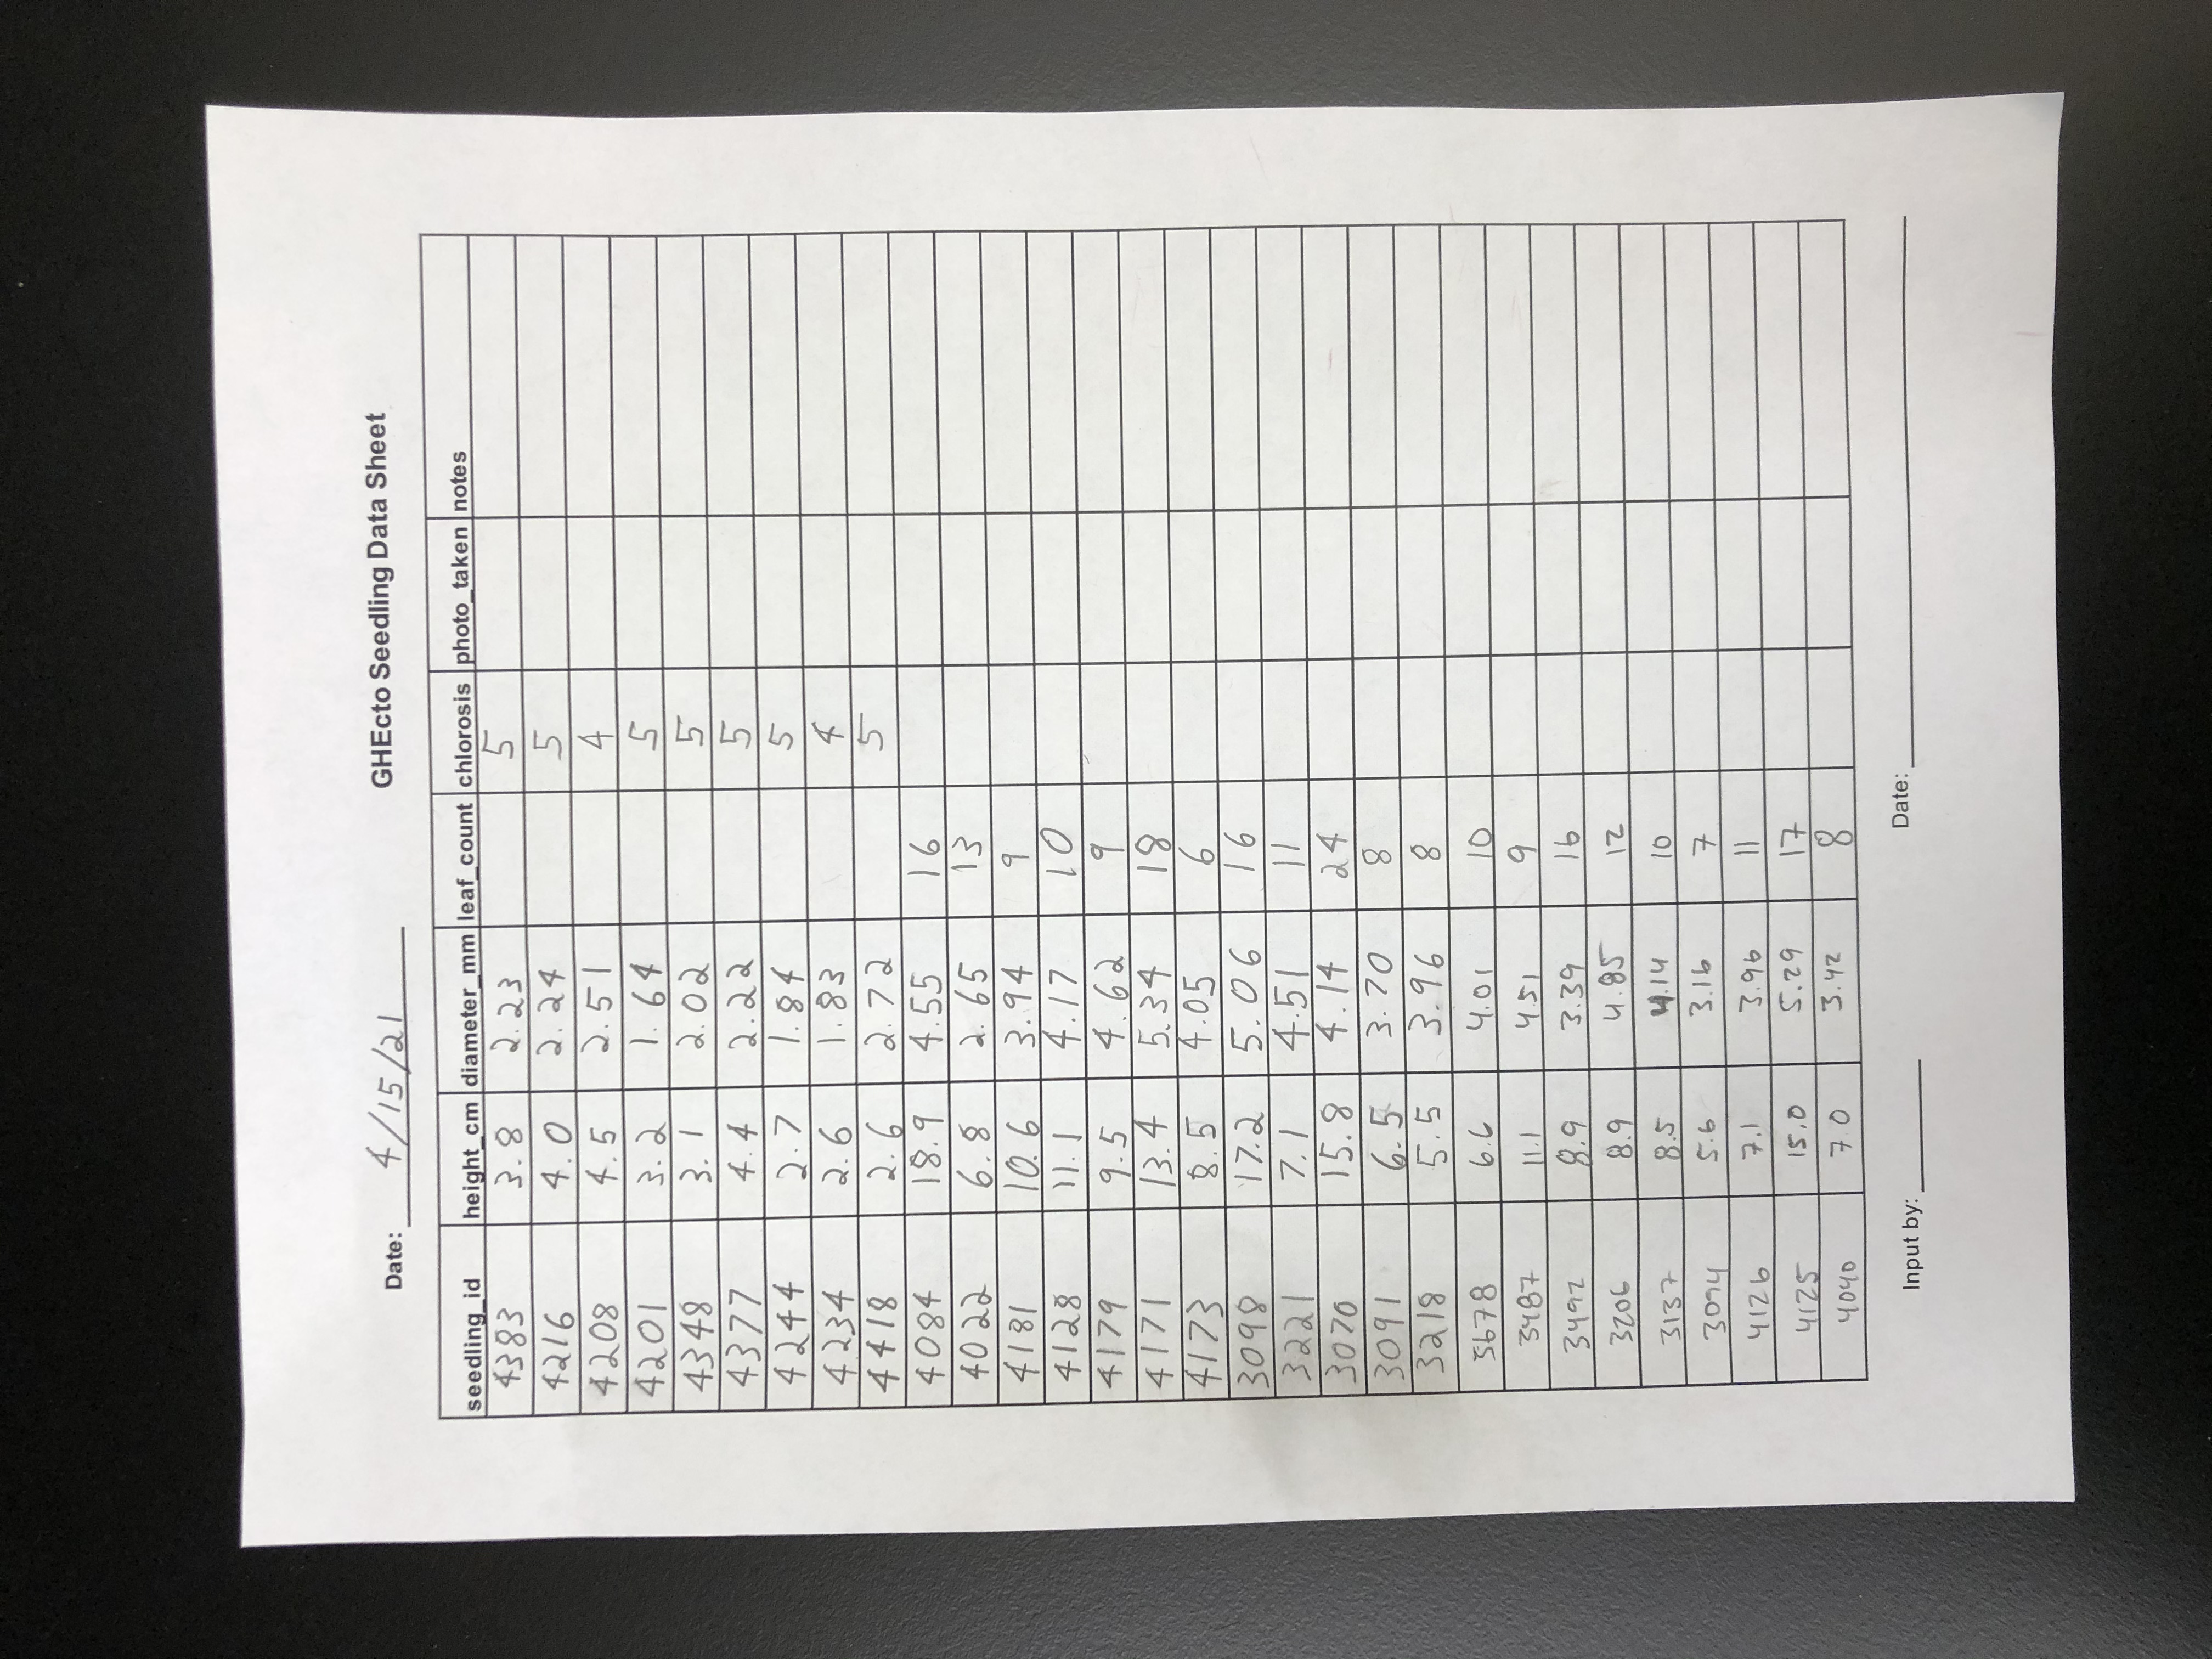 Date: 4/15/21 GHEcto Seedling Data Sheet
seedling_id height_cm diameter_mm leaf_count chlorosis photo_taken notes
4383 3.8 2.23 5
4216 4.0 2.24 5
4208 4.5 2.51 4
4201 3.2 1.64 5
4348 3.1 2.02 5
4377 4.4 2.22 5
4244 2.7 1.84 5
4234 2.6 1.83 4
4418 2.6 2.72 5
4084 18.9 4.55 16
4022 6.8 2.65 13
4181 10.6 3.94 9
4128 11.1 4.17 10
4179 9.5 4.62 9
4171 13.4 5.34 18
4173 8.5 4.05 6
3098 17.2 5.06 16
3221 7.1 4.51 11
3070 15.8 4.14 24
3091 6.5 3.70 8
3218 5.5 3.96 8
6.6 4.01 10
3487 11.1 4.51 9
3492 8.9 3.39 16
3206 8.9 4.85 12
3137 8.5 4.14 10
3094 5.6 3.16 7
4126 7.1 3.96 11
4125 15.0 5.29 17
4040 7.0 3.42 8
Input by: Date: